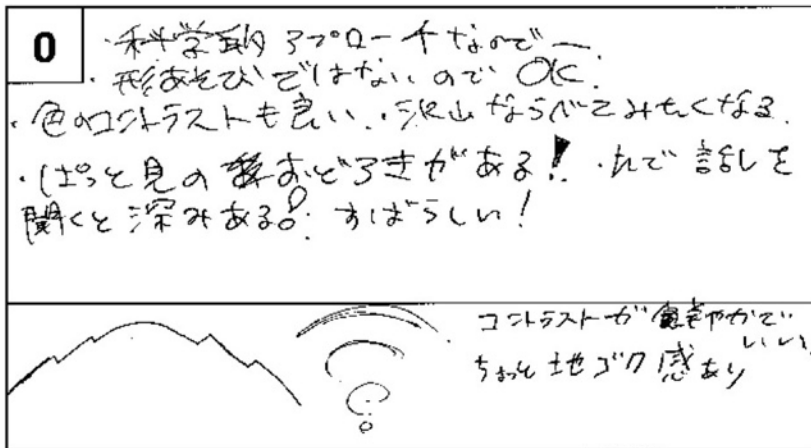 0
・科学的アプローチなので ー
・形あそびではないので OK.
・色のコントラストも良い. ・沢山ならべてみたくなる.
・ぱっと見のおどろきがある! ・んで 話しを
聞くと深みある. すばらしい!
コントラストが鮮やかで
いい.
ちょっと地ゴク感あり